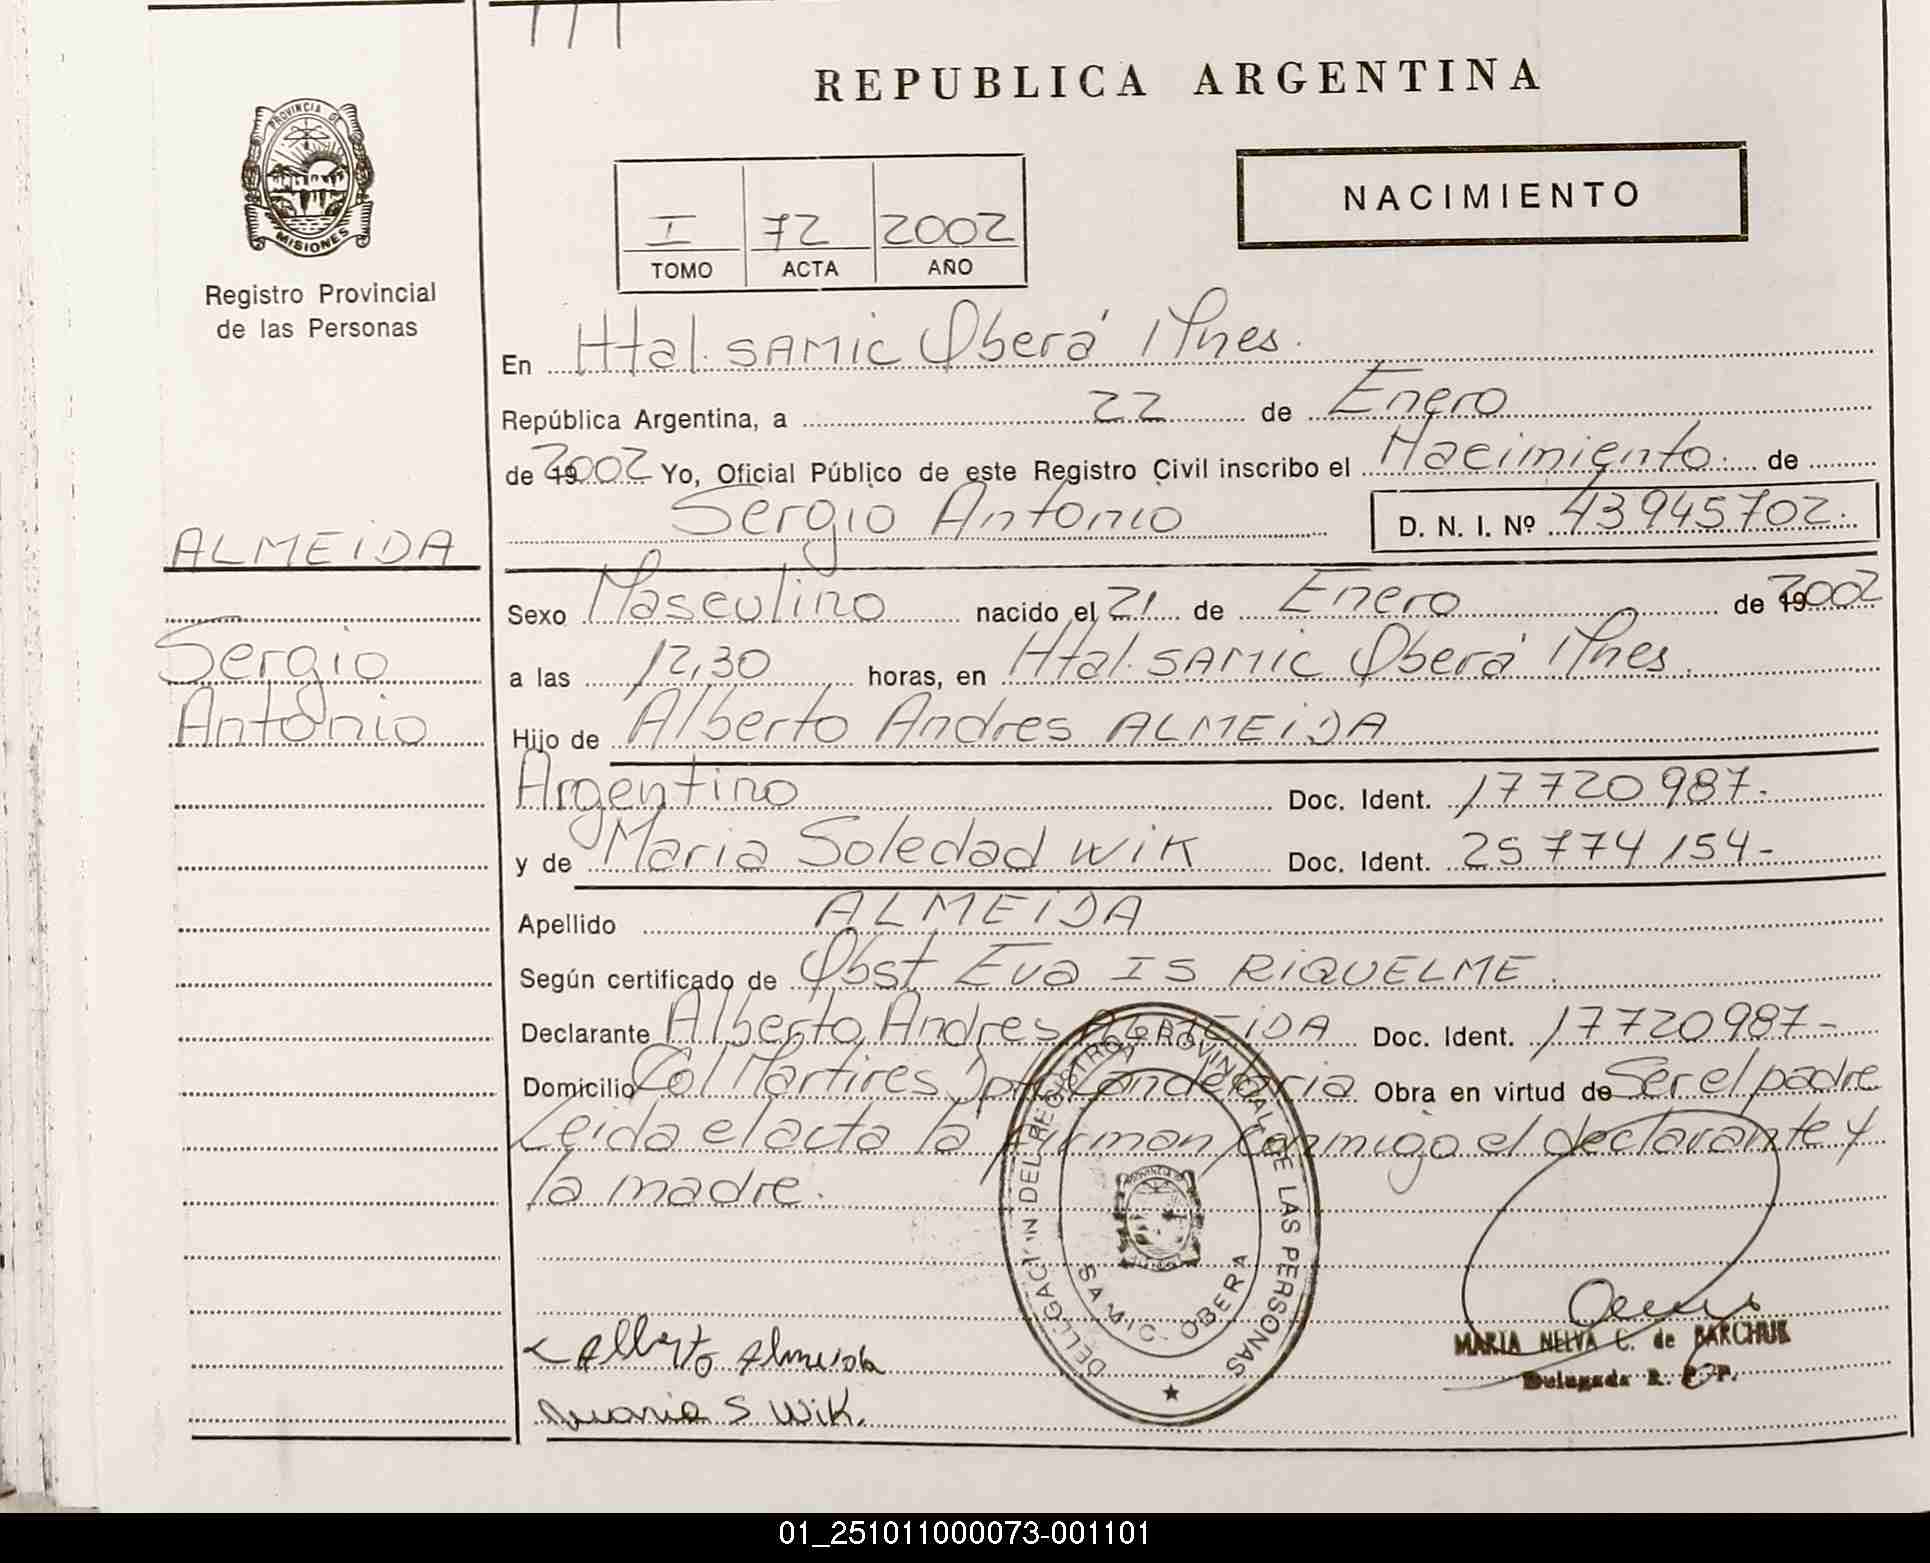 REPUBLICA ARGENTINA
PROVINCIA DE
MISIONES
Registro Provincial
de las Personas
NACIMIENTO
I 72 2002
TOMO ACTA AÑO
En Htal. SAMIC Oberá Mnes.
República Argentina, a 22 de Enero
de 192002 Yo, Oficial Público de este Registro Civil inscribo el Nacimiento de
Sergio Antonio D. N. I. Nº 43945702.
ALMEIDA
Sergio
Antonio
Sexo Masculino nacido el 21 de Enero de 192002
a las 12,30 horas, en Htal. SAMIC Oberá Mnes.
Hijo de Alberto Andres ALMEIDA
Argentino Doc. Ident. 17720987-
y de Maria Soledad Wik Doc. Ident. 25774154-
Apellido ALMEIDA
Según certificado de Obst Eva IS RIQUELME.
Declarante Alberto Andres ALMEIDA Doc. Ident. 17720987-
Domicilio Col Martires Dpto Candelaria Obra en virtud de Ser el padre
Leida el acta la firman conmigo el declarante y
la madre.
DELEGACION DEL REGISTRO PROVINCIAL DE LAS PERSONAS
SAMIC - OBERA
Alberto Almeida
Maria S Wik.
MARIA NELVA C. de BARCHUK
Delegada R. P. P.
01_251011000073-001101